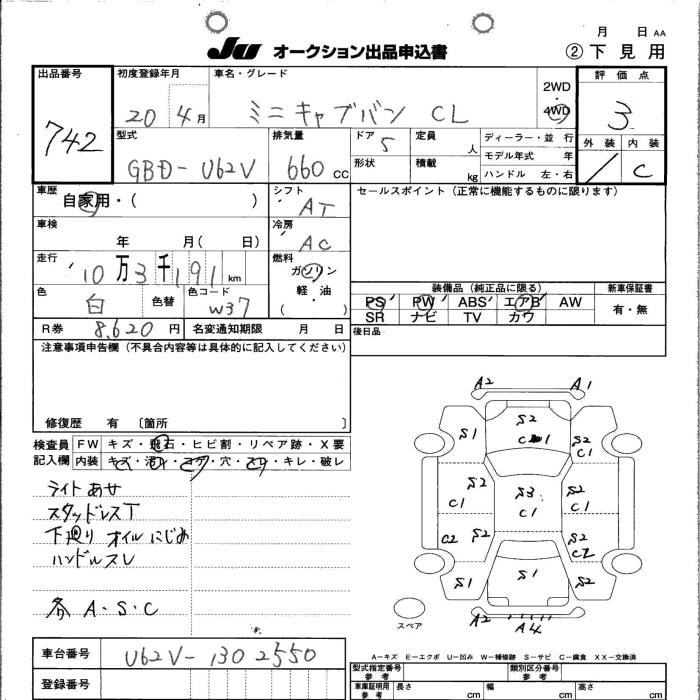 月 日 AA
JU オークション出品申込書 ②下見用
出品番号 初度登録年月 車名・グレード 評価点
742 20年 4月 ミニキャブバン CL 2WD・4WD 3
型式 排気量 ドア 定員 ディーラー・並 行 外装 内装
GBD-U62V 660cc 5 人 モデル年式 年 / C
形状 積載 kg ハンドル 左・右
車歴 自家用・( ) シフト AT セールスポイント(正常に機能するものに限ります)
車検 年 月( 日) 冷房 AC
走行 10万3千191km 燃料 ガソリン
軽・油
( )
色 白 色替 色コード W37
装備品(純正品に限る) 新車保証書
PS PW ABS エアB AW 有・無
SR ナビ TV カワ
R券 8,620円 名変通知期限 月 日 後日品
注意事項申告欄(不具合内容等は具体的に記入してください)
修復歴 有 〔箇所 〕
検査員記入欄 FW キズ・飛石・ヒビ割・リペア跡・X要
内装 キズ・汚レ・コゲ・穴・キレ・破レ
ライトあせ
スタッドレスT
下廻り オイルにじみ
ハンドルスレ
各 A・S・C
A2 A1
S2
S1 C1 S2
C1
S2 S3 S2
C1 C1 C1
C2 S2 S2
C2
S1 S1 S2
A2 A4
スペア
車台番号 U62V-1302550
登録番号
A-キズ E-エクボ U-凹み W-補修跡 S-サビ C-腐食 XX-交換済
型式指定番号 参考 類別区分番号 参考
車庫証明用 参考 長さ cm 幅 cm 高さ cm